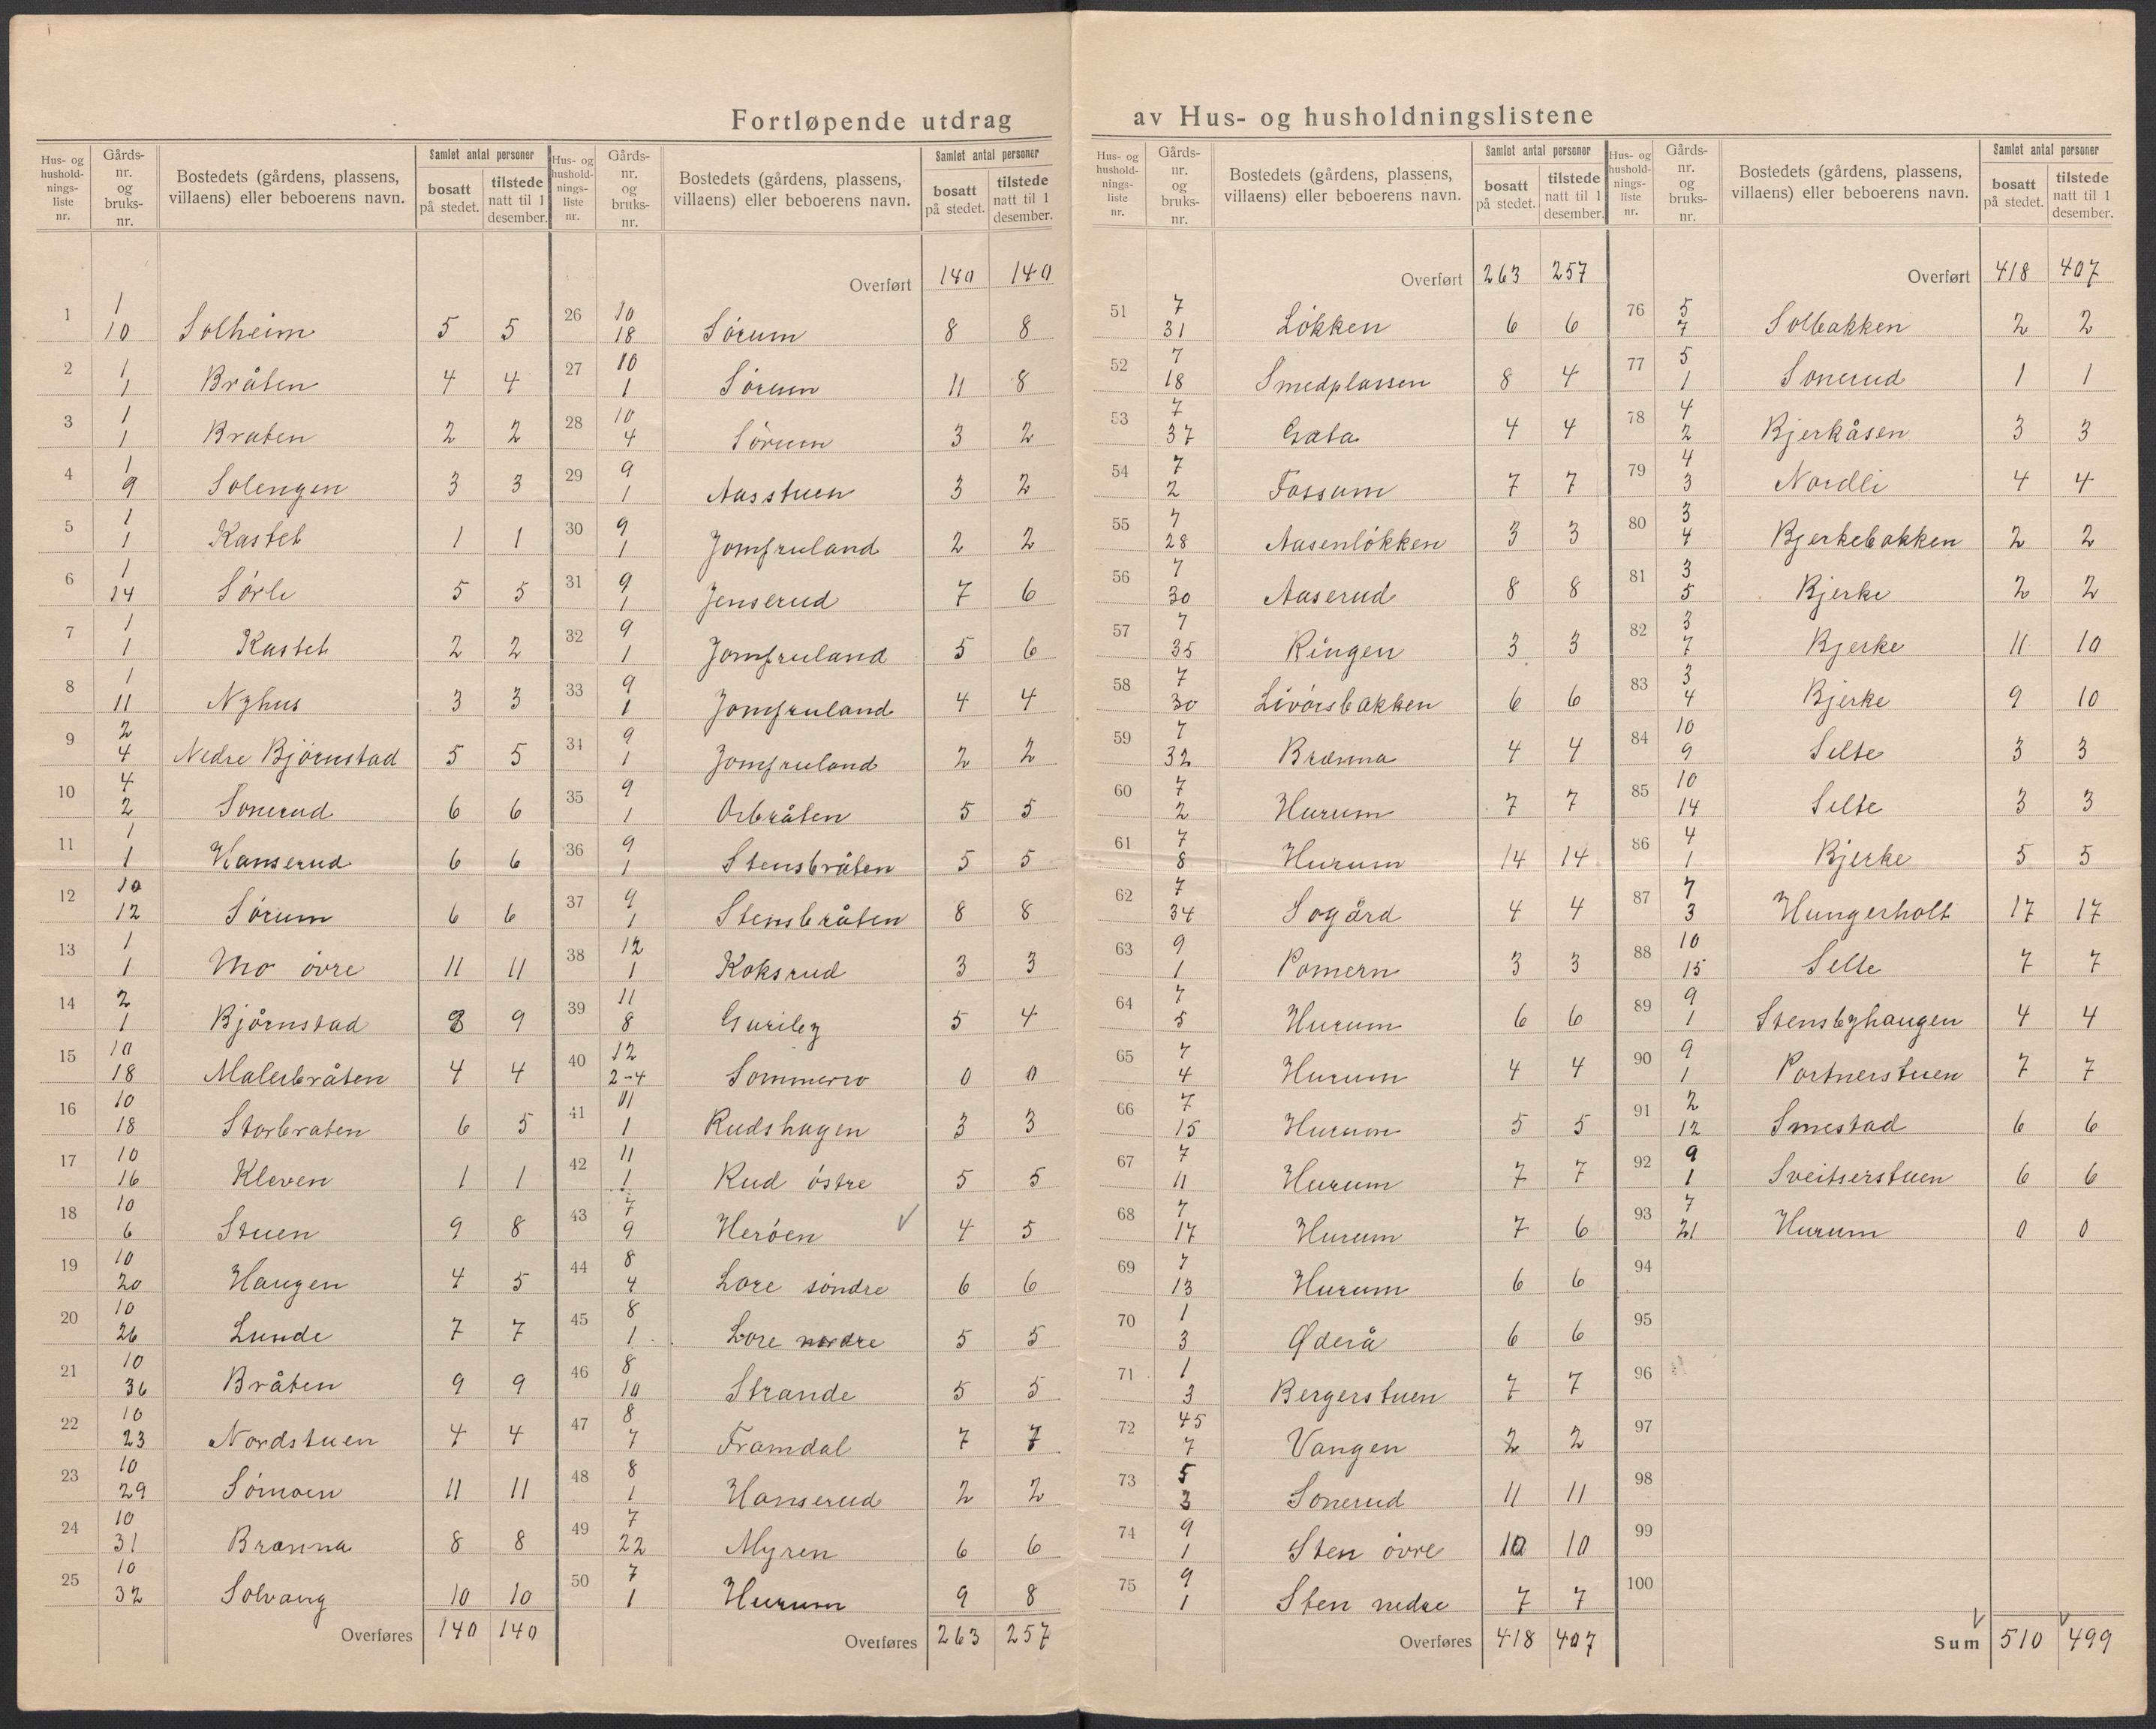 Fortløpende utdrag av Hus- og husholdningslistene
Hus- og husholdnings- liste nr. | Gårds- nr. og bruks- nr. | Bostedets (gårdens, plassens, villaens) eller beboerens navn. | Samlet antal personer bosatt på stedet. | tilstede natt til 1 desember.
1 | 1 10 | Solheim | 5 | 5
2 | 1 1 | Bråten | 4 | 4
3 | 1 1 | Braten | 2 | 2
4 | 1 9 | Solengen | 3 | 3
5 | 1 1 | Kastet | 1 | 1
6 | 1 14 | Sørli | 5 | 5
7 | 1 1 | Kastet | 2 | 2
8 | 1 11 | Nyhus | 3 | 3
9 | 2 4 | Nedre Bjørnstad | 5 | 5
10 | 4 2 | Sonerud | 6 | 6
11 | 1 1 | Hanserud | 6 | 6
12 | 10 12 | Sørum | 6 | 6
13 | 1 1 | Mo övre | 11 | 11
14 | 2 1 | Bjørnstad | 8 | 9
15 | 10 18 | Malerbråten | 4 | 4
16 | 10 18 | Storbraten | 6 | 5
17 | 10 16 | Kleven | 1 | 1
18 | 10 6 | Stuen | 9 | 8
19 | 10 20 | Haugen | 4 | 5
20 | 10 26 | Lunde | 7 | 7
21 | 10 36 | Bråten | 9 | 9
22 | 10 23 | Nordstuen | 4 | 4
23 | 10 29 | Sömoen | 11 | 11
24 | 10 31 | Brænna | 8 | 8
25 | 10 32 | Solvang | 10 | 10
Overføres 140 140
Hus- og husholdnings- liste nr. | Gårds- nr. og bruks- nr. | Bostedets (gårdens, plassens, villaens) eller beboerens navn. | Samlet antal personer bosatt på stedet. | tilstede natt til 1 desember.
Overført 140 140
26 | 10 18 | Sörum | 8 | 8
27 | 10 1 | Sörum | 11 | 8
28 | 10 4 | Sörum | 3 | 2
29 | 9 1 | Aasstuen | 3 | 2
30 | 9 1 | Jomfruland | 2 | 2
31 | 9 1 | Jenserud | 7 | 6
32 | 9 1 | Jomfruland | 5 | 6
33 | 9 1 | Jomfruland | 4 | 4
34 | 9 1 | Jomfruland | 2 | 2
35 | 9 1 | Orbråten | 5 | 5
36 | 9 1 | Stensbråten | 5 | 5
37 | 9 1 | Stensbråten | 8 | 8
38 | 12 1 | Koksrud | 3 | 3
39 | 11 8 | Guriby | 5 | 4
40 | 12 2-4 | Sommerro | 0 | 0
41 | 11 1 | Rudshagen | 3 | 3
42 | 11 1 | Rud östre | 5 | 5
43 | 7 9 | Heröen | 4 | 5
44 | 8 4 | Lore söndre | 6 | 6
45 | 8 1 | Lore nordre | 5 | 5
46 | 8 10 | Strande | 5 | 5
47 | 8 7 | Framdal | 7 | 7
48 | 8 1 | Hanserud | 2 | 2
49 | 7 22 | Myren | 6 | 6
50 | 7 1 | Hurum | 9 | 8
Overføres 263 257
Hus- og husholdnings- liste nr. | Gårds- nr. og bruks- nr. | Bostedets (gårdens, plassens, villaens) eller beboerens navn. | Samlet antal personer bosatt på stedet. | tilstede natt til 1 desember.
Overført 263 257
51 | 7 31 | Lökken | 6 | 6
52 | 7 18 | Smedplassen | 8 | 4
53 | 7 37 | Gata | 4 | 4
54 | 7 2 | Fossum | 7 | 7
55 | 7 28 | Aasenlökken | 3 | 3
56 | 7 30 | Aaserud | 8 | 8
57 | 7 35 | Ringen | 3 | 3
58 | 7 30 | Livörsbakken | 6 | 6
59 | 7 32 | Brænna | 4 | 4
60 | 7 2 | Hurum | 7 | 7
61 | 7 8 | Hurum | 14 | 14
62 | 7 34 | Sogård | 4 | 4
63 | 9 1 | Pomern | 3 | 3
64 | 7 5 | Hurum | 6 | 6
65 | 7 4 | Hurum | 4 | 4
66 | 7 15 | Hurum | 5 | 5
67 | 7 11 | Hurum | 7 | 7
68 | 7 17 | Hurum | 7 | 6
69 | 7 13 | Hurum | 6 | 6
70 | 1 3 | Øderå | 6 | 6
71 | 1 3 | Bergerstuen | 7 | 7
72 | 45 7 | Vangen | 2 | 2
73 | 5 3 | Sonerud | 11 | 11
74 | 9 1 | Sten övre | 10 | 10
75 | 9 1 | Sten nedre | 7 | 7
Overføres 418 407
Hus- og husholdnings- liste nr. | Gårds- nr. og bruks- nr. | Bostedets (gårdens, plassens, villaens) eller beboerens navn. | Samlet antal personer bosatt på stedet. | tilstede natt til 1 desember.
Overført 418 407
76 | 5 7 | Solbakken | 2 | 2
77 | 5 1 | Sonerud | 1 | 1
78 | 4 2 | Bjerkåsen | 3 | 3
79 | 4 3 | Nordli | 4 | 4
80 | 3 4 | Bjerkebakken | 2 | 2
81 | 3 5 | Bjerke | 2 | 2
82 | 3 7 | Bjerke | 11 | 10
83 | 3 4 | Bjerke | 9 | 10
84 | 10 9 | Selte | 3 | 3
85 | 10 14 | Selte | 3 | 3
86 | 4 1 | Bjerke | 5 | 5
87 | 7 3 | Hungerholt | 17 | 17
88 | 10 15 | Selte | 7 | 7
89 | 9 1 | Stensbyhaugen | 4 | 4
90 | 9 1 | Portnerstuen | 7 | 7
91 | 2 12 | Smestad | 6 | 6
92 | 9 1 | Sveitserstuen | 6 | 6
93 | 7 21 | Hurum | 0 | 0
94
95
96
97
98
99
100
Sum 510 499